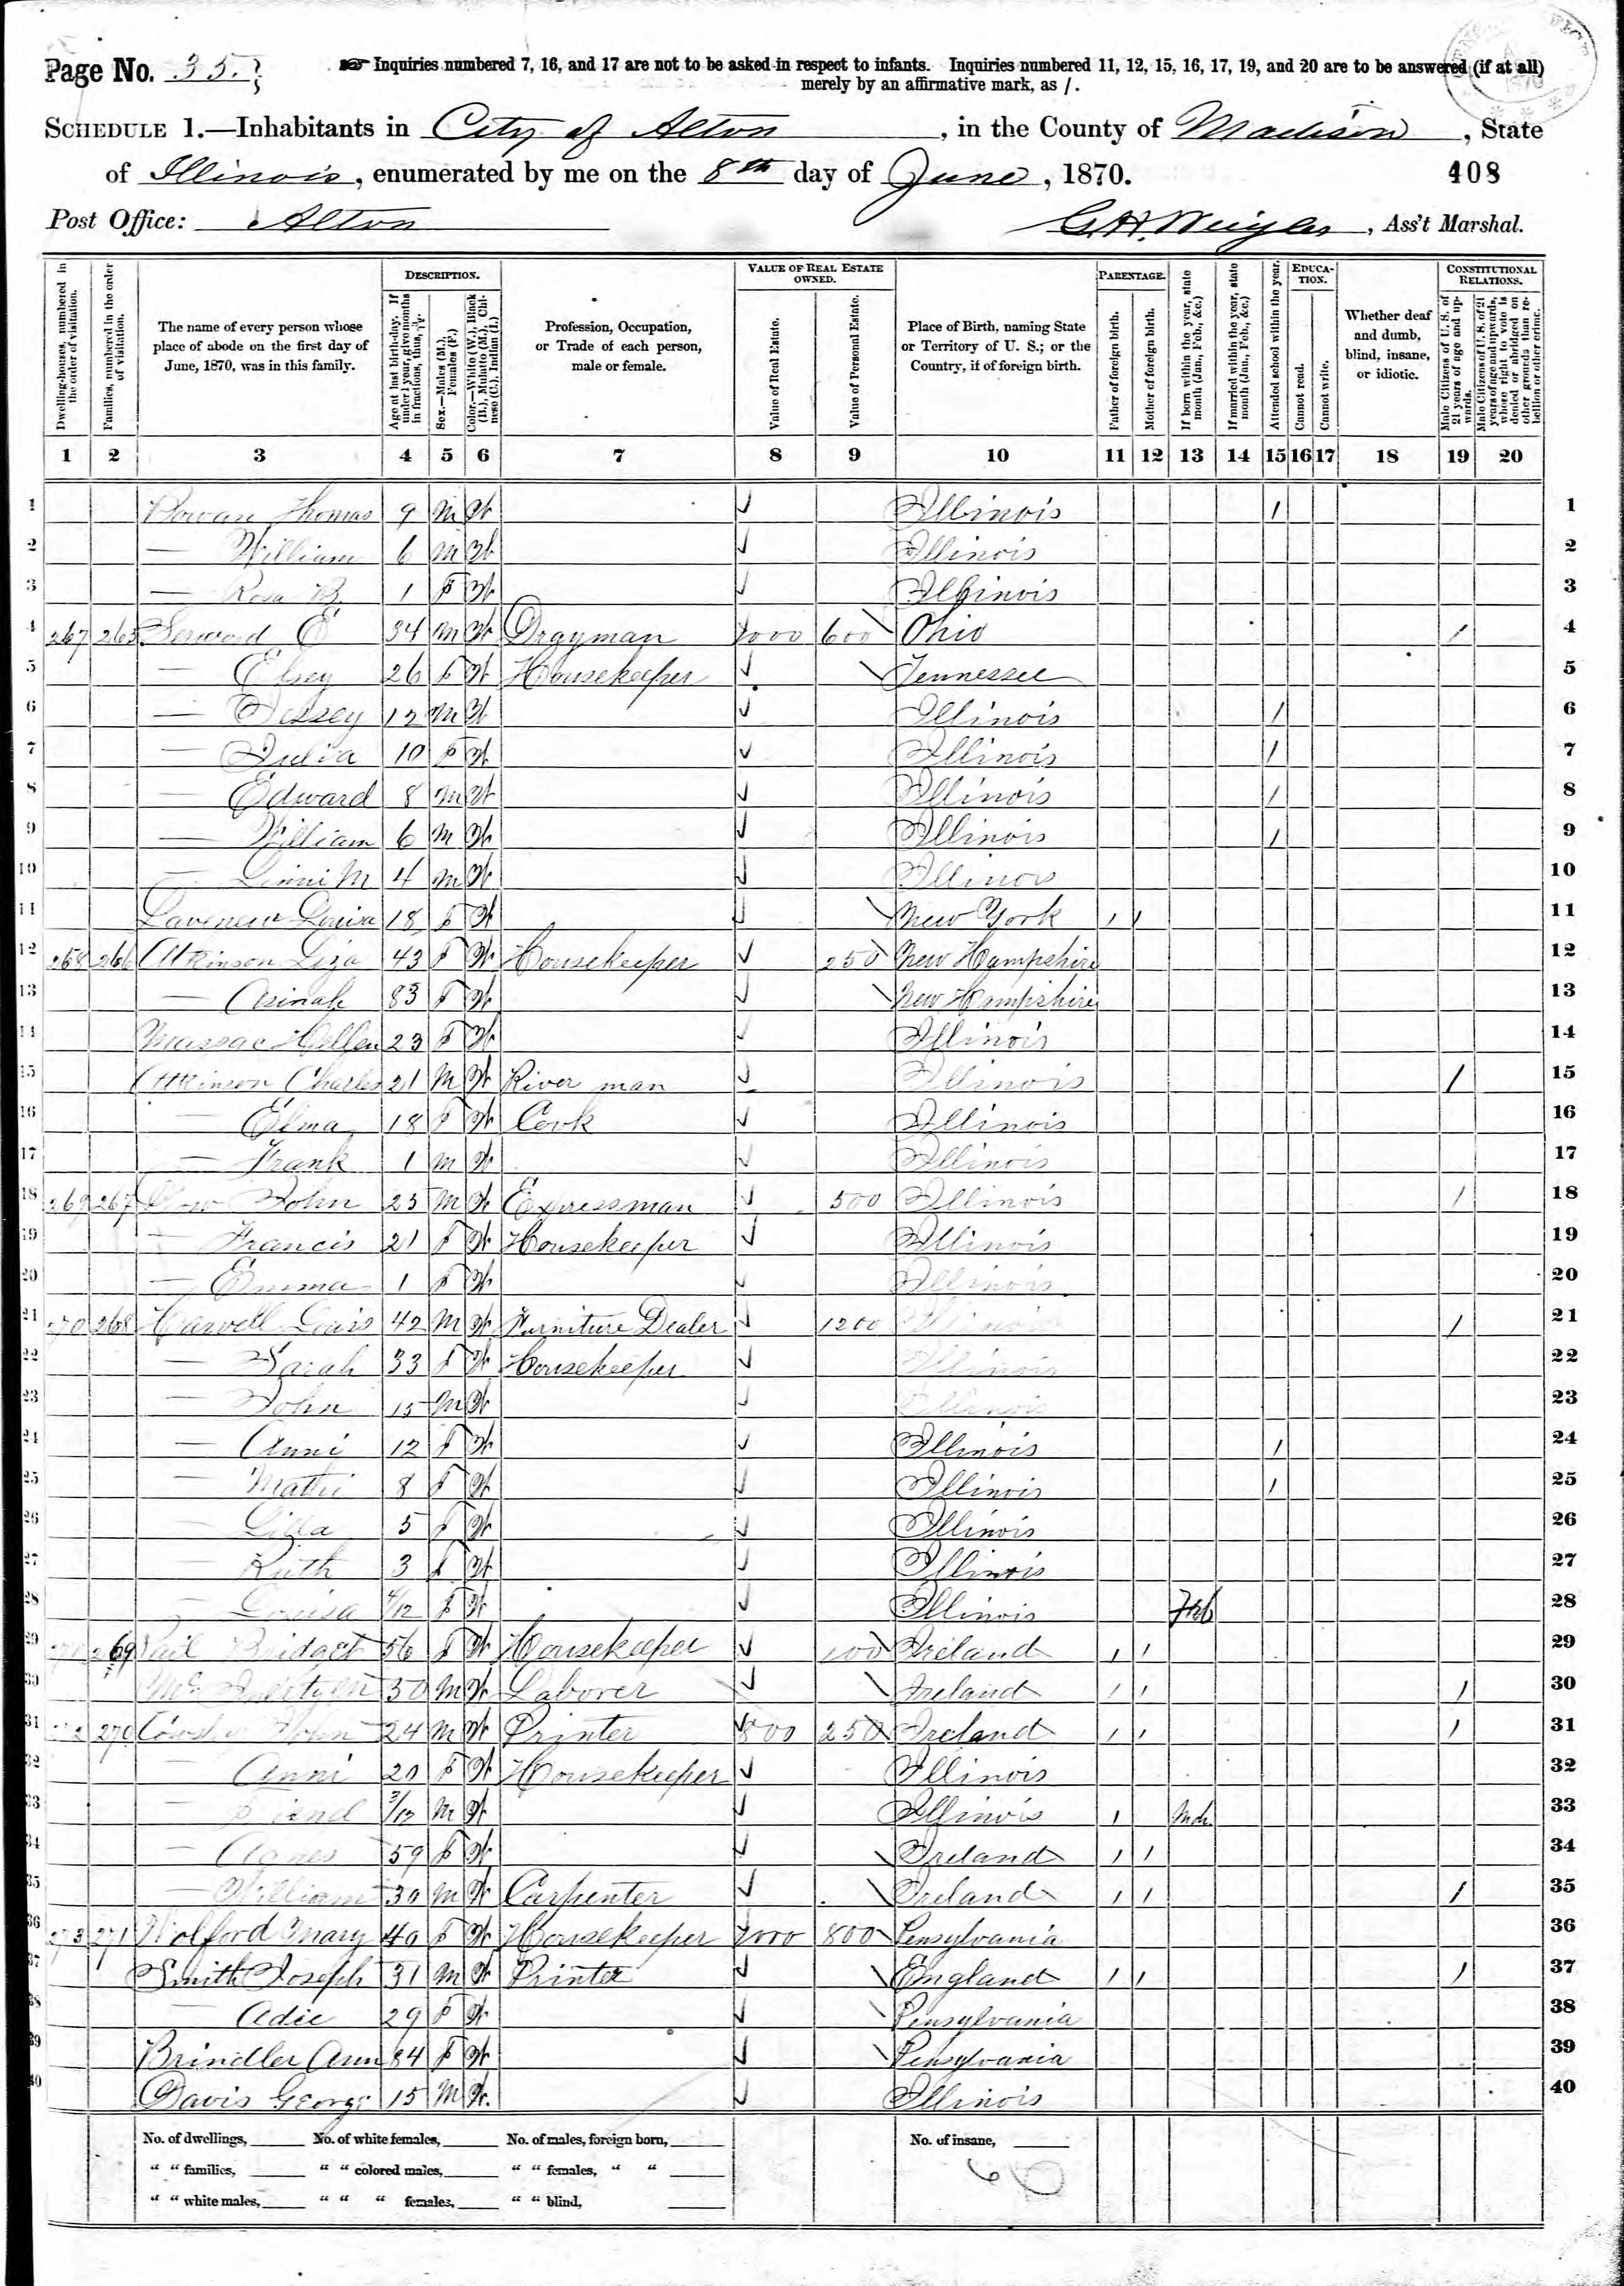 Page No. 35.
Inquiries numbered 7, 16, and 17 are not to be asked in respect to infants. Inquiries numbered 11, 12, 15, 16, 17, 19, and 20 are to be answered (if at all)
merely by an affirmative mark, as /.
SCHEDULE 1.—Inhabitants in City of Alton, in the County of Madison, State
of Illinois, enumerated by me on the 8th day of June, 1870. 408
Post Office: Alton , Ass't Marshal.
Dwelling-houses, numbered in the order of visitation.
Families, numbered in the order of visitation.
The name of every person whose place of abode on the first day of June, 1870, was in this family.
DESCRIPTION.
Age at last birth-day. If under 1 year, give months in fractions, thus, 3/12
Sex.—Males (M.), Females (F.)
Color.—White (W.), Black (B.), Mulatto (M.), Chinese (C.), Indian (I.)
Profession, Occupation, or Trade of each person, male or female.
VALUE OF REAL ESTATE OWNED.
Value of Real Estate.
Value of Personal Estate.
Place of Birth, naming State or Territory of U. S.; or the Country, if of foreign birth.
PARENTAGE.
Father of foreign birth.
Mother of foreign birth.
If born within the year, state month (Jan., Feb., &c.)
If married within the year, state month (Jan., Feb., &c.)
Attended school within the year.
EDUCATION.
Cannot read.
Cannot write.
Whether deaf and dumb, blind, insane, or idiotic.
CONSTITUTIONAL RELATIONS.
Male Citizens of U. S. of 21 years of age and upwards.
Male Citizens of U. S. of 21 years of age and upwards, where right to vote is denied or abridged on other grounds than rebellion or other crime.
1 2 3 4 5 6 7 8 9 10 11 12 13 14 15 16 17 18 19 20
1 Thomas 9 M W Illinois / 1
2 — William 6 M W Illinois 2
3 — Rosa B. 1 F W Illinois 3
4 267 265 E 34 M W Drayman 600 Ohio / 4
5 — Elsey 26 F W Housekeeper Tennessee 5
6 — 12 M W Illinois / 6
7 — Julia 10 F W Illinois / 7
8 — Edward 8 M W Illinois / 8
9 — William 6 M W Illinois / 9
10 — M 4 M W Illinois 10
11 Louisa 18 F W New York / / 11
12 268 266 Atkinson Liza 43 F W Housekeeper 250 New Hampshire 12
13 — Asinah 83 F W New Hampshire 13
14 Hellen 23 F W Illinois 14
15 Atkinson Charles 21 M W River man Illinois / 15
16 — Elma 18 F W Cook Illinois 16
17 — Frank 1 M W Illinois 17
18 269 267 John 25 M W Expressman 500 Illinois / 18
19 — Francis 21 F W Housekeeper Illinois 19
20 — Emma 1 F W Illinois 20
21 270 268 Harvell Louis 42 M W Furniture Dealer 1200 Illinois / 21
22 — Sarah 33 F W Housekeeper Illinois 22
23 — John 15 M W Illinois 23
24 — Anni 12 F W Illinois / 24
25 — Matti 8 F W Illinois / 25
26 — Lizza 5 F W Illinois 26
27 — Ruth 3 F W Illinois 27
28 — Louisa 4/12 F W Illinois Feb 28
29 269 Bridget 56 F W Housekeeper 100 Ireland / / 29
30 M W Laborer Ireland / / / 30
31 270 John 24 M W Printer 800 250 Ireland / / / 31
32 — Anni 20 F W Housekeeper Illinois 32
33 — 3/12 M W Illinois / Mch 33
34 — Agnes 59 F W Ireland / / 34
35 — William 30 M W Carpenter Ireland / / / 35
36 273 271 Wolford Mary 40 F W Housekeeper 800 Pensylvania 36
37 Smith Joseph 31 M W Printer England / / / 37
38 — Adie 29 F W Pensylvania 38
39 Brindler Ann 84 F W Pensylvania 39
40 Davis George 15 M W. Illinois 40
No. of dwellings, No. of white females, No. of males, foreign born, No. of insane,
" " families, " " colored males, " " females, " "
" " white males, " " " females, " " blind,